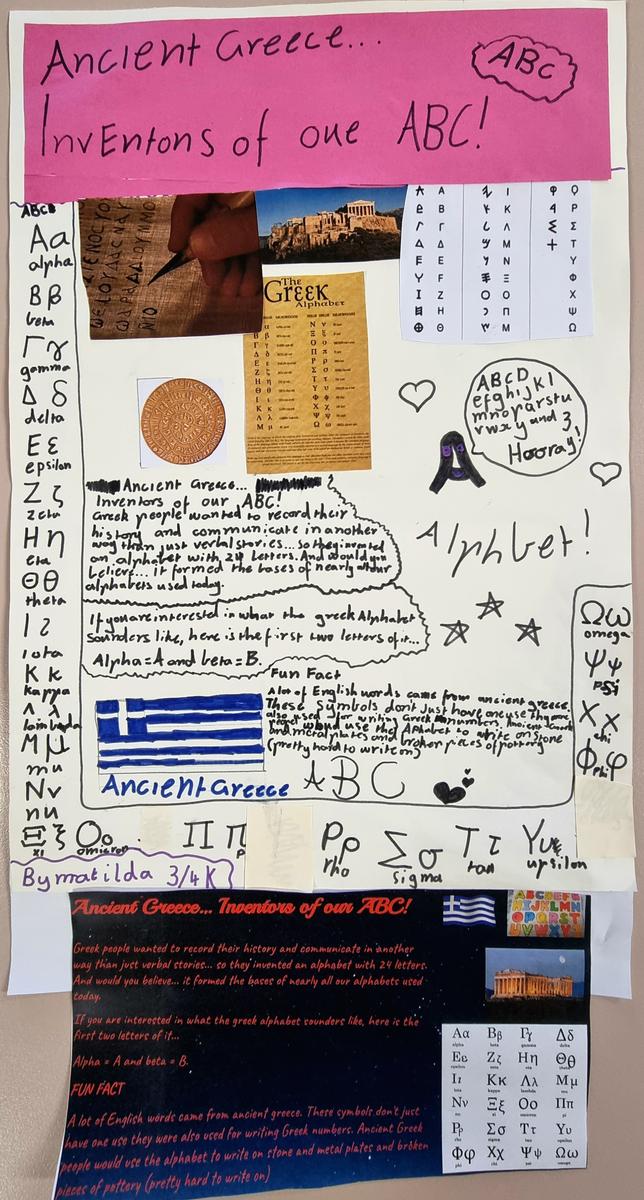 Ancient Greece...
ABC
InvEntons of oue ABC!
ABCD
Aa
alpha
Ββ
beta
Γγ
gamma
Δ δ
delta
Εε
epsilon
Ζ ζ
zeta
Ηη
eta
Θθ
theta
Ι ι
iota
Κ κ
kappa
Λ λ
lambda
Μ μ
mu
Νν
nu
Ξ ξ
xi
Οο
omicron
Π π
p
Ρρ
rho
Σ σ
sigma
Τ τ
tau
Υυ
upsilon
Φφ
phi
Χχ
chi
Ψψ
psi
Ωω
omega
The
Greek
Alphabet
ABCD
efghijkl
mnoparstu
vwxy and 3,
Hooray!
Alphbet!
Ancient Greece...
Inventors of our ABC!
Greek people wanted to record their
history and communicate in another
way than just verbal stories... so they invented
an alphabet with 24 letters. And would you
believe... it formed the bases of nearly all our
alphabets used today.
If you are interested in what the greek Alphabet
sounders like, here is the first two letters of it...
Alpha=A and beta=B.
Fun Fact
A lot of English words came from ancient greece.
These symbols don't just have one use they are
also used for writing Greek numbers. Ancient Greek
people would use the Alphabet to write on stone
and metal plates and broken pieces of pottery
(pretty hard to write on)
Ancient Greece
ABC
By matilda 3/4K
Ancient Greece... Inventors of our ABC!
Greek people wanted to record their history and communicate in another
way than just verbal stories... so they invented an alphabet with 24 letters.
And would you believe... it formed the bases of nearly all our alphabets used
today.
If you are interested in what the greek alphabet sounders like, here is the
first two letters of it...
Alpha = A and beta = B.
FUN FACT
A lot of English words came from ancient greece. These symbols don't just
have one use they were also used for writing Greek numbers. Ancient Greek
people would use the alphabet to write on stone and metal plates and broken
pieces of pottery (pretty hard to write on)
Αα Ββ Γγ Δδ
alpha beta gamma delta
Εε Ζζ Ηη Θθ
epsilon zeta eta theta
Ιι Κκ Λλ Μμ
iota kappa lambda mu
Νν Ξξ Οο Ππ
nu xi omicron pi
Ρρ Σσ Ττ Υυ
rho sigma tau upsilon
Φφ Χχ Ψψ Ωω
phi chi psi omega